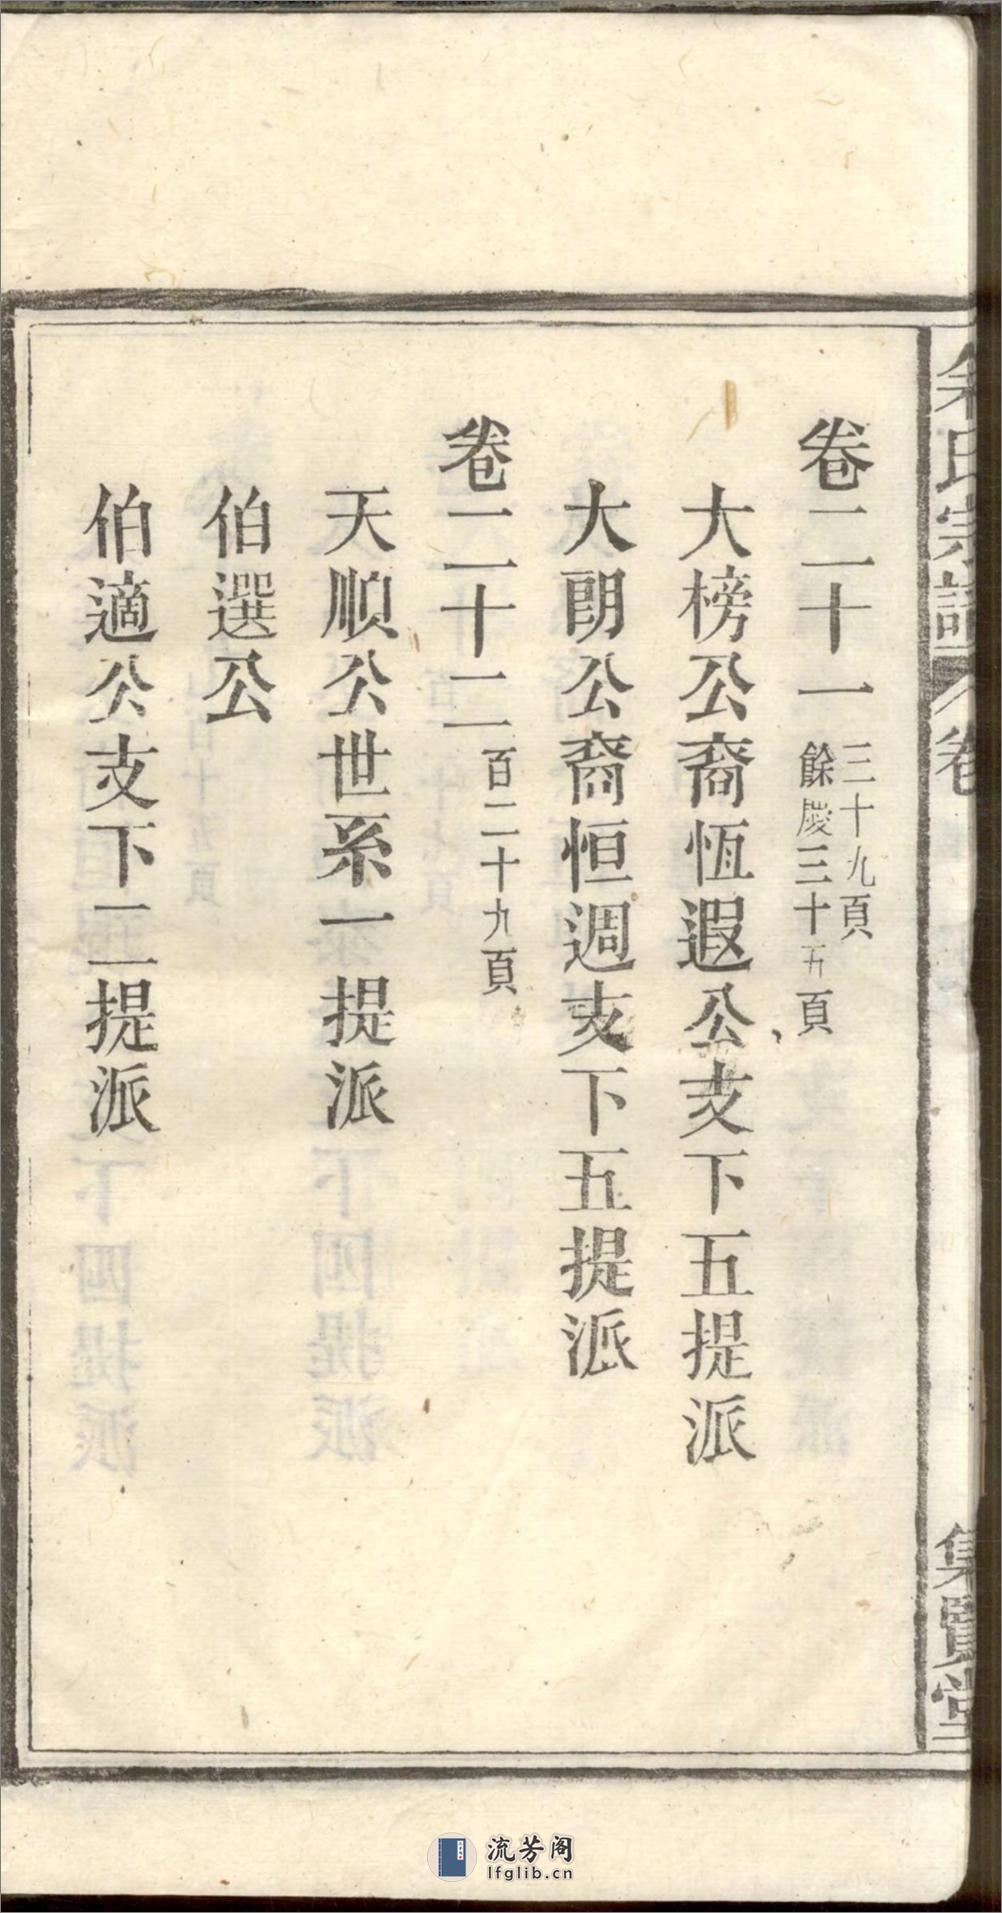 朱氏宗譜 卷
集賢堂
卷二十一 三十九頁
餘慶三十五頁
大榜公裔恆遐公支下五提派
大朗公裔恒週支下五提派
卷二十二 百二十九頁
天順公世系一提派
伯選公
伯適公支下二提派
流芳阁
lfglib.cn